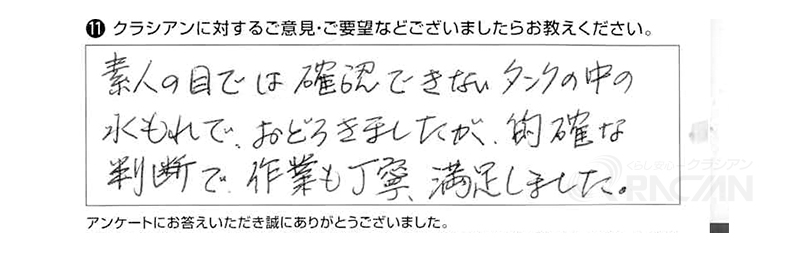 ⑪ クラシアンに対するご意見・ご要望などございましたらお教えください。
素人の目では確認できないタンクの中の
水もれで、おどろきましたが、的確な
判断で、作業も丁寧、満足しました。
くらし安心クラシアン
QRACIAN
アンケートにお答えいただき誠にありがとうございました。